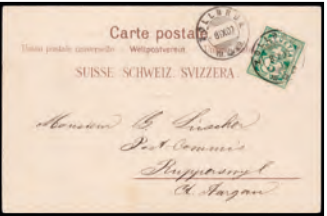 Carte postale
Union postale universelle. - Weltpostverein.
SUISSE. SCHWEIZ. SVIZZERA.
Monsieur G. Lüscher
Post-Commis
Rupperswyl
Ct. Aargau